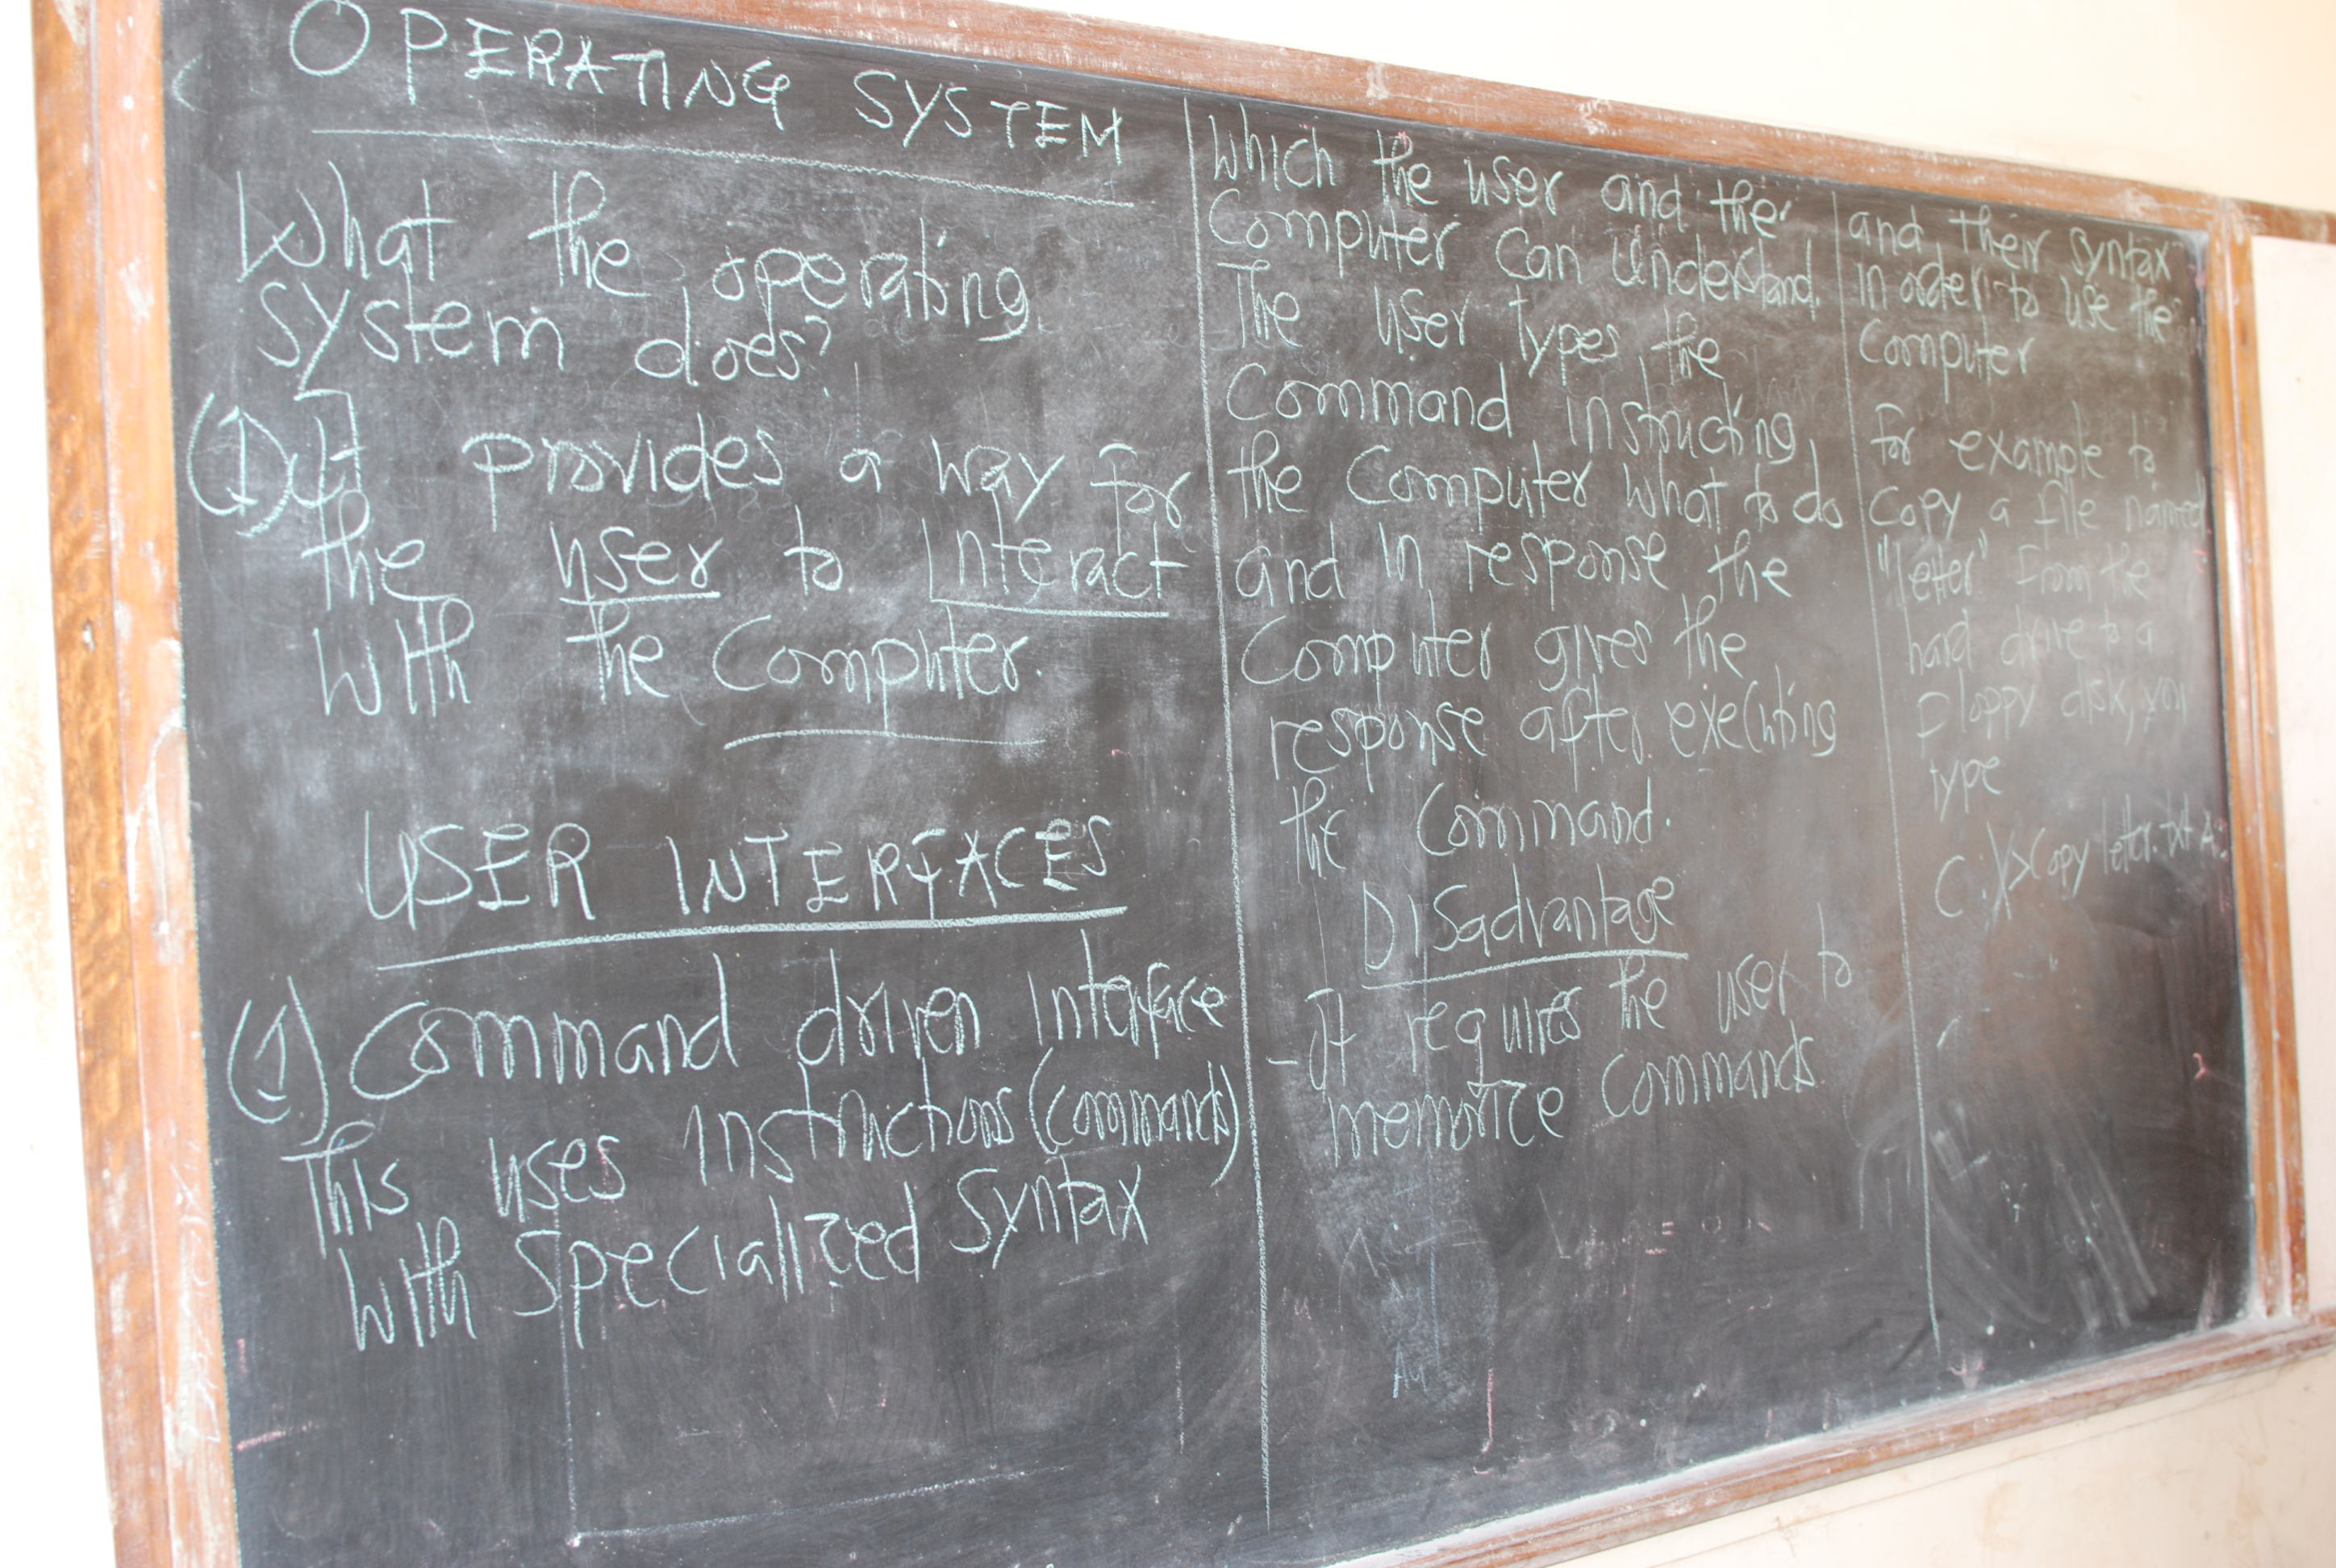 OPERATING SYSTEM
What the operating
system does?
(1) It provides a way for
the user to interact
with the Computer.
USER INTERFACES
(1) Command driven interface
This uses instructions (commands)
with specialized syntax
which the user and the
Computer can understand.
The user types the
Command instructing
the Computer what to do
and in response the
Computer gives the
response after executing
the Command.
Disadvantage
- It requires the user to
memorize Commands
and their syntax
in order to use the
Computer
for example to
Copy a file named
"letter" from the
hard drive to a
floppy disk, you
type
C:\>Copy letter.txt A: